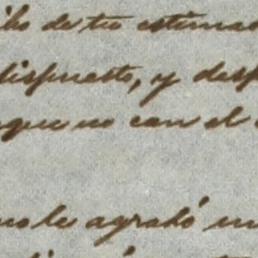 ibo de tu estimad
dispuesto, y desp
que no con el
no le agradó un